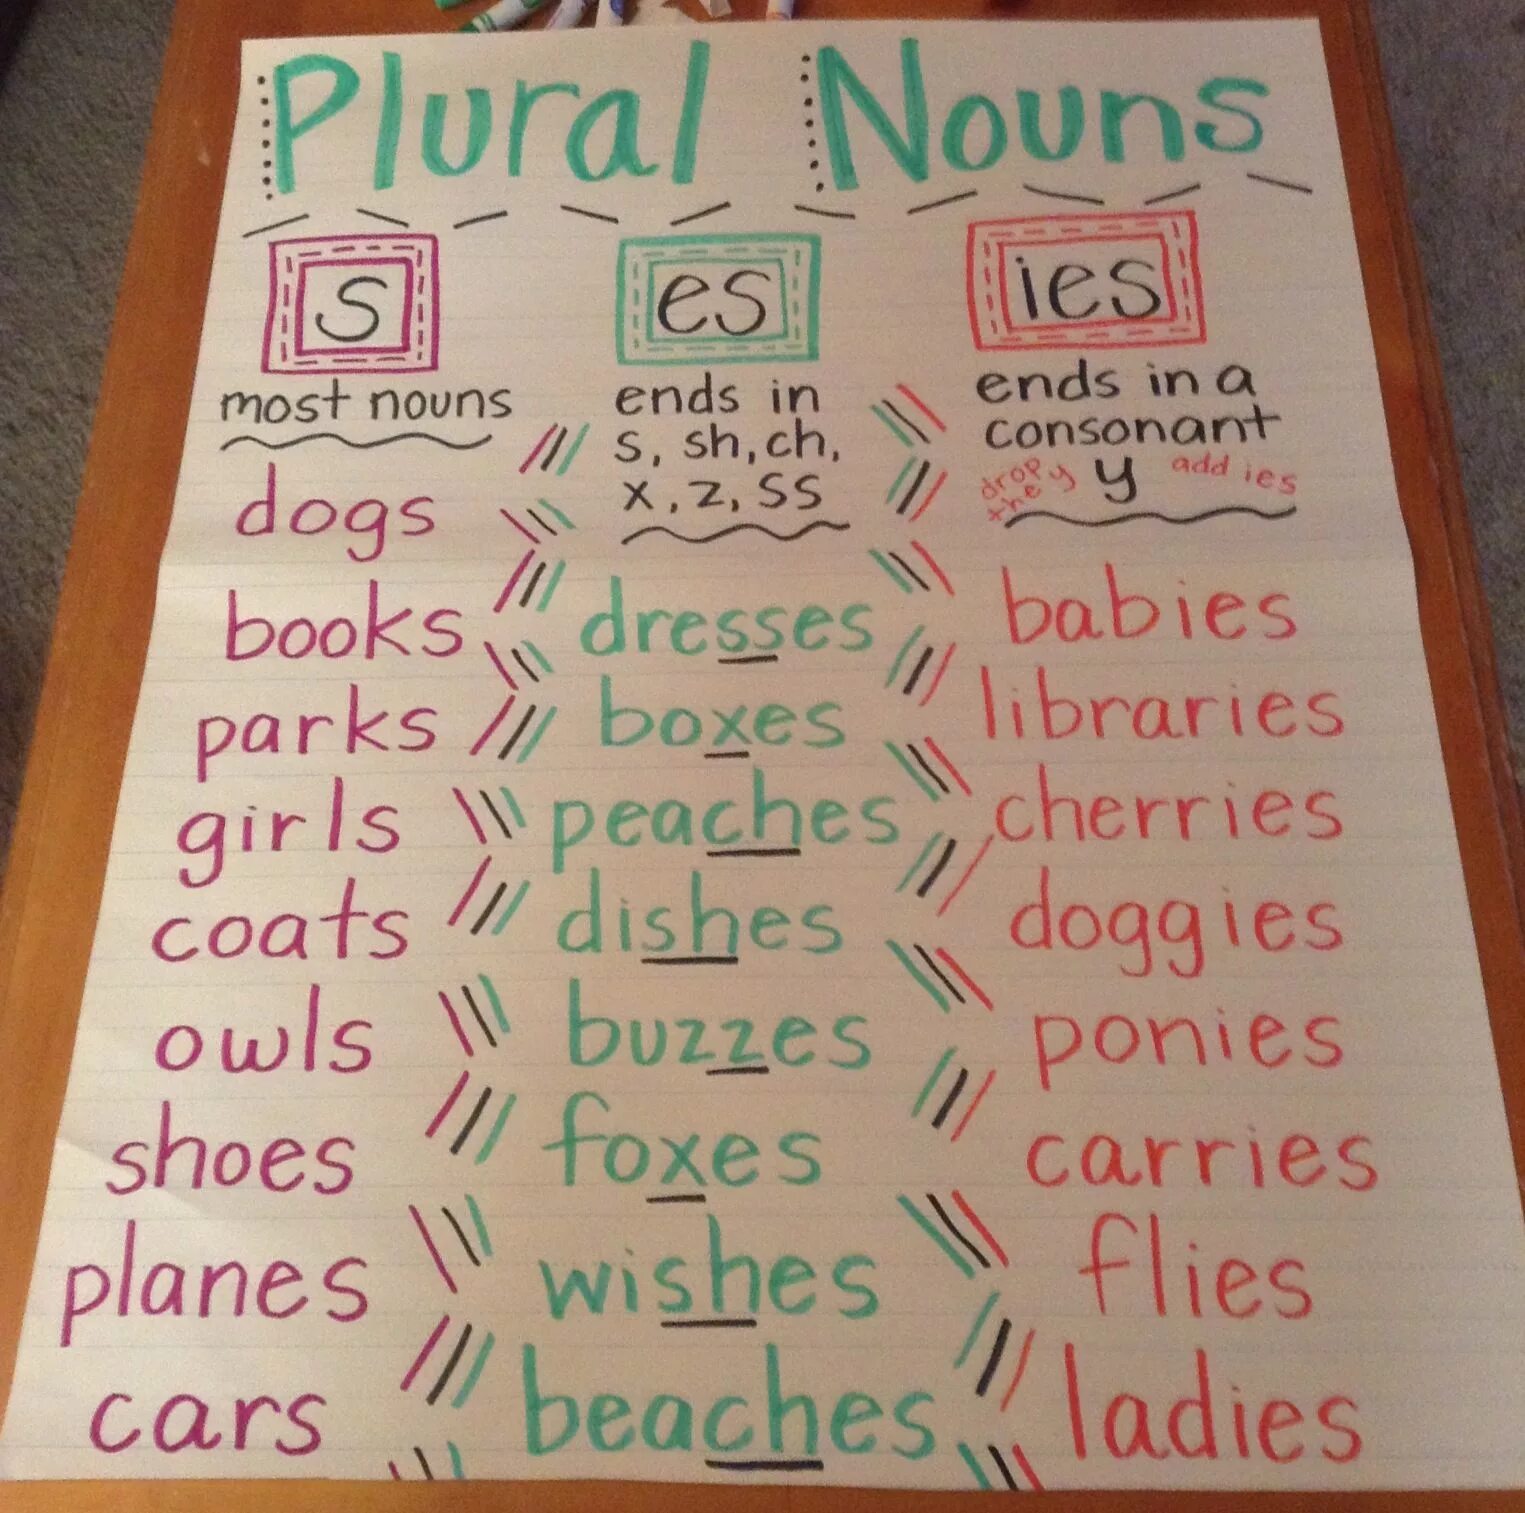 Plural Nouns
s
most nouns
dogs
books
parks
girls
coats
owls
shoes
planes
cars
es
ends in
s, sh, ch,
x, z, ss
dresses
boxes
peaches
dishes
buzzes
foxes
wishes
beaches
ies
ends in a
consonant
drop the y
y
add ies
babies
libraries
cherries
doggies
ponies
carries
flies
ladies